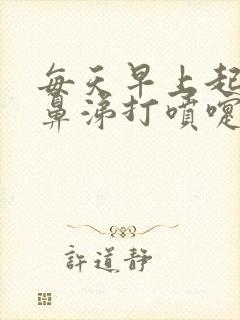 每天早上起
鼻涕打噴嚏
許道靜